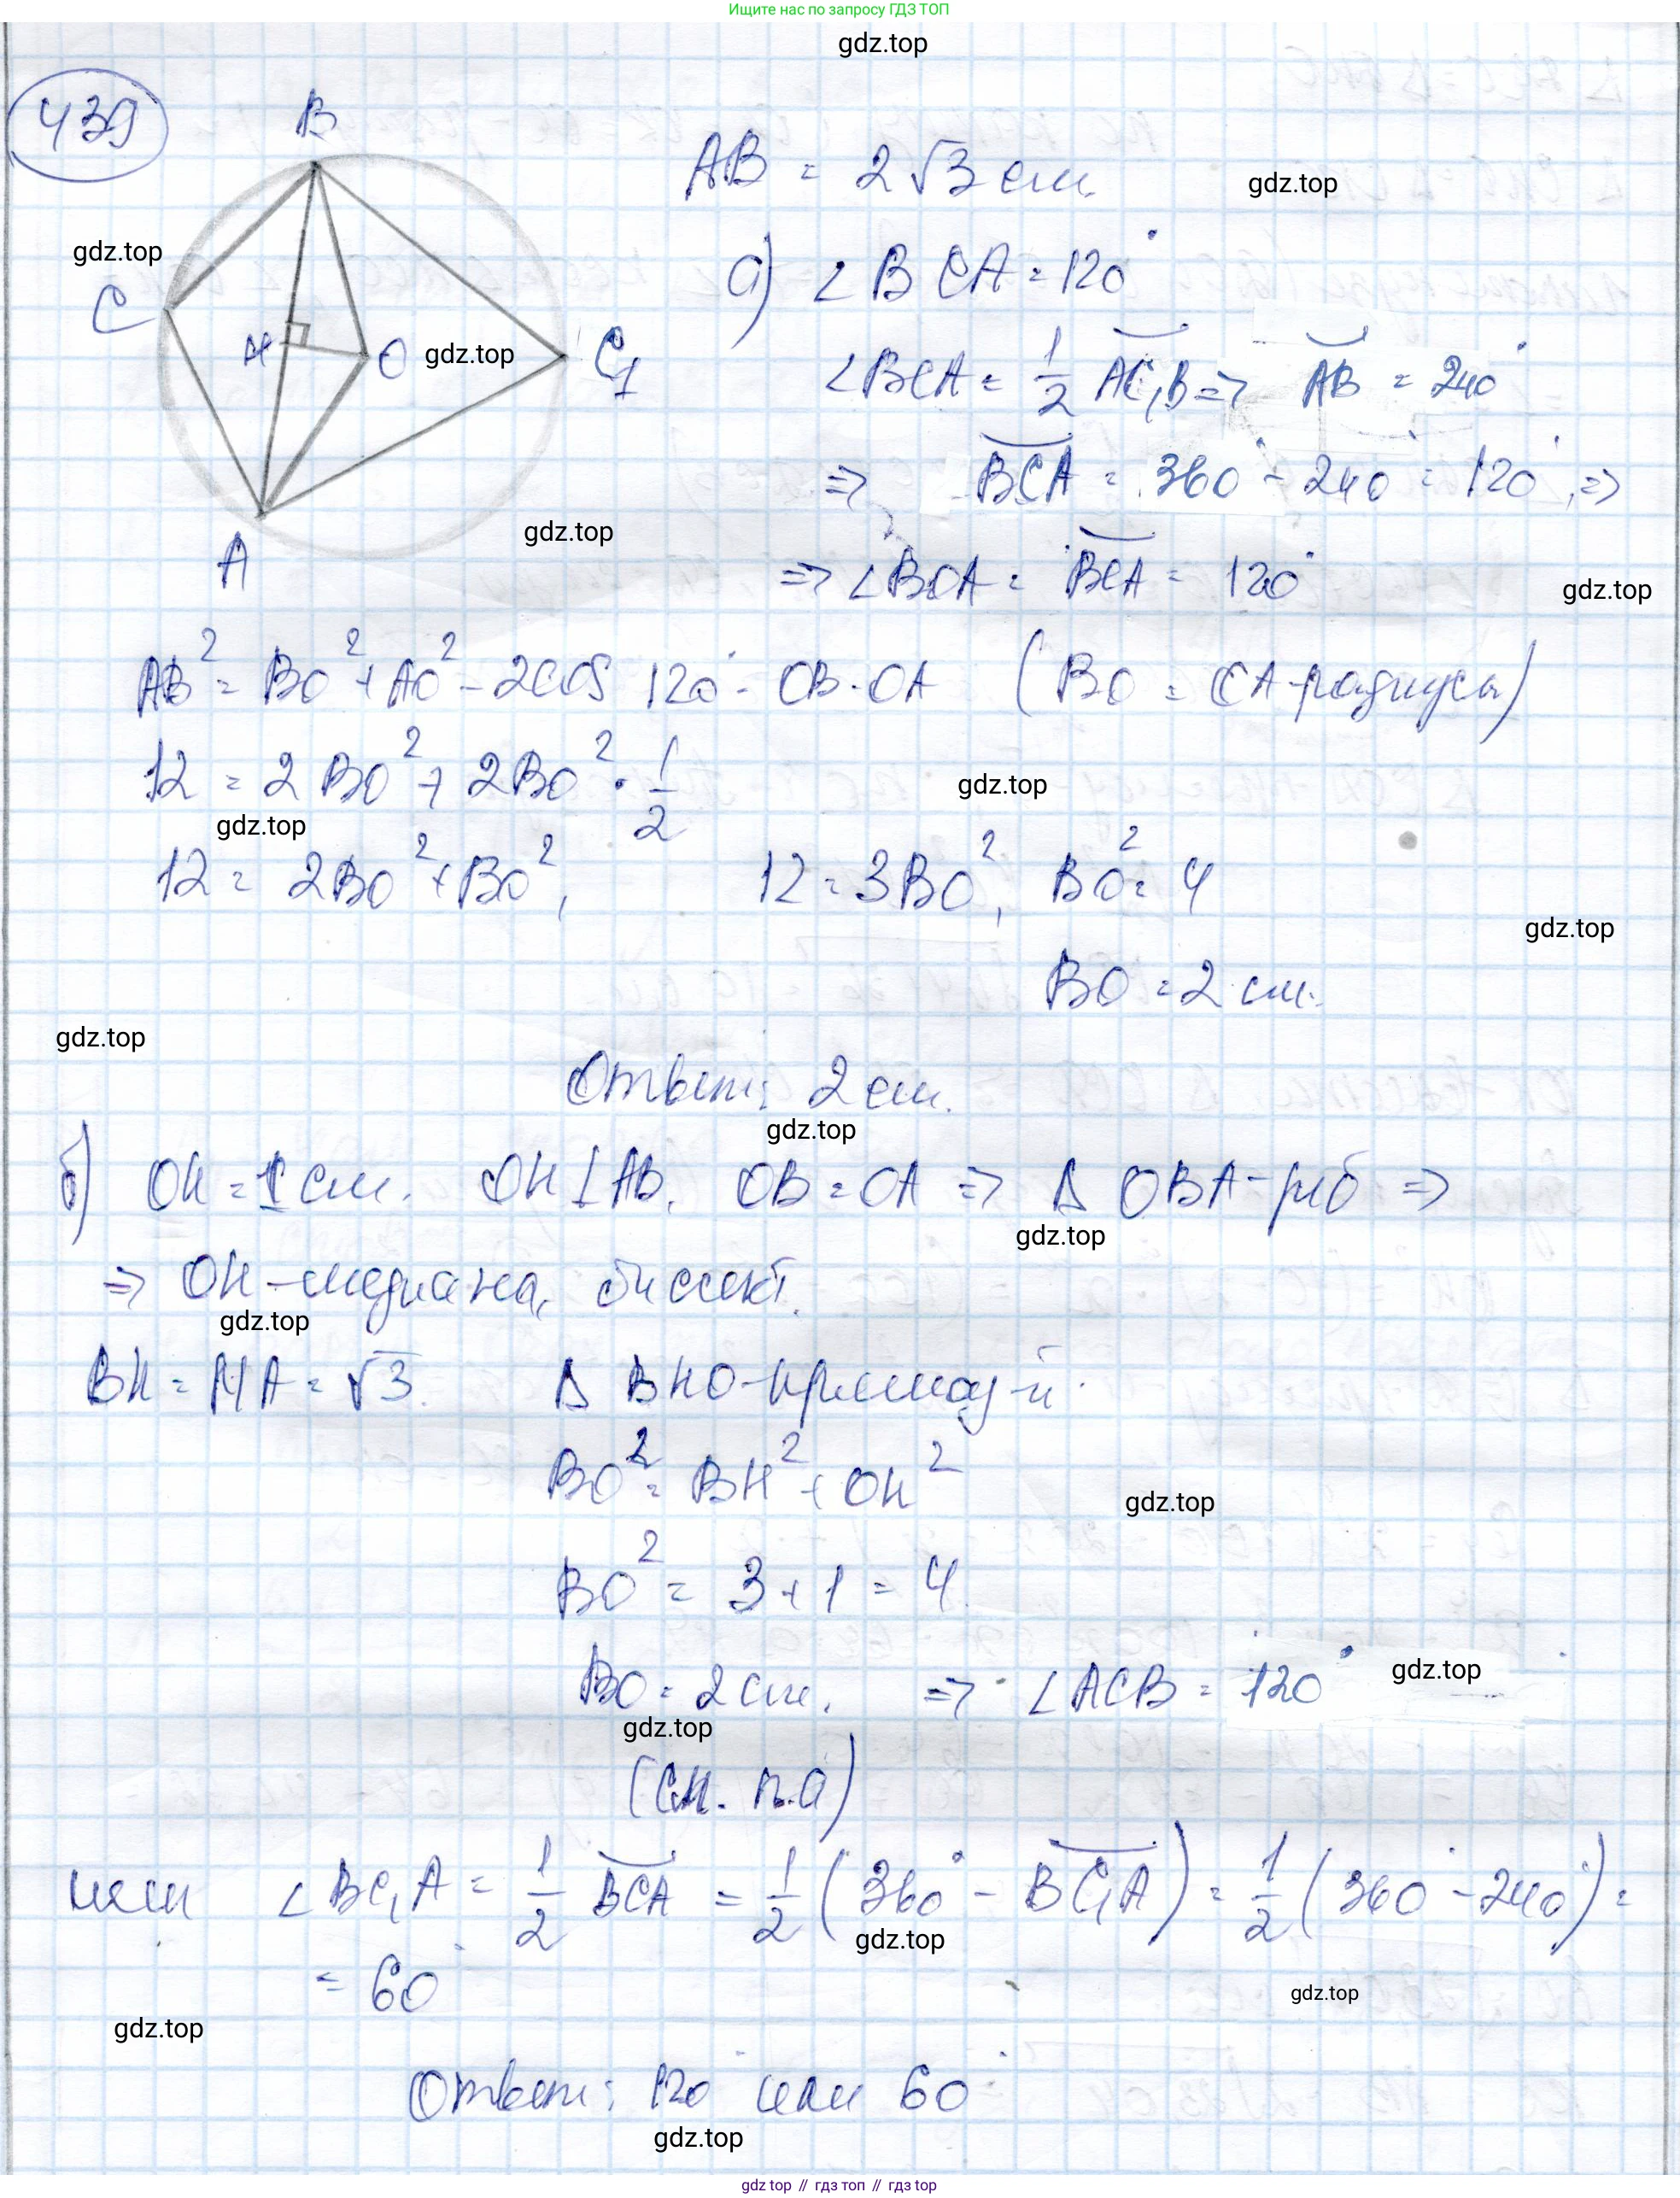 Ищите нас по запросу ГДЗ ТОП
gdz.top
439
B
AB = 2√3 см.
gdz.top
gdz.top
а) ∠BCA = 120°
C
H
O
gdz.top
C₁
∠BCA = 1/2 AC₁B => AB = 240°
=> BCA = 360° - 240° = 120° =>
gdz.top
A
=> ∠BOA = BCA = 120°
gdz.top
AB² = BO² + AO² - 2cos 120° · OB · OA (BO = OA - радиусы)
12 = 2BO² + 2BO² · 1/2
gdz.top
gdz.top
12 = 2BO² + BO², 12 = 3BO², BO² = 4
gdz.top
BO = 2 см.
gdz.top
Ответ: 2 см.
gdz.top
б) OH = 1 см. OH ⊥ AB. OB = OA => Δ OBA - р/б =>
gdz.top
=> OH - медиана, биссект.
gdz.top
BH = HA = √3. Δ BHO - прямоуг-й.
BO² = BH² + OH²
gdz.top
BO² = 3 + 1 = 4
BO = 2 см. => ∠ACB = 120°
gdz.top
gdz.top
(см. п.а)
или ∠BC₁A = 1/2 BCA = 1/2 (360° - BC₁A) = 1/2 (360° - 240°) =
gdz.top
= 60°
gdz.top
gdz.top
Ответ: 120° или 60°
gdz.top
gdz top // гдз топ // гдз top